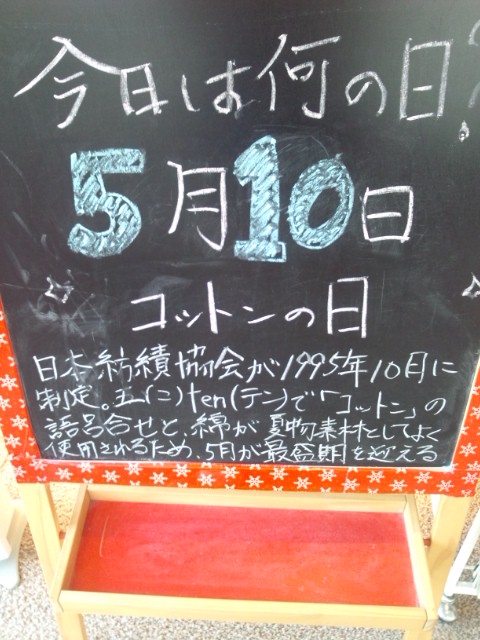 今日は何の日?
5月10日
コットンの日
日本紡績協会が1995年10月に
制定。五(こ)ten(テン)で「コットン」の
語呂合せと、綿が夏物素材としてよく
使用されるため、5月が最盛期を迎える